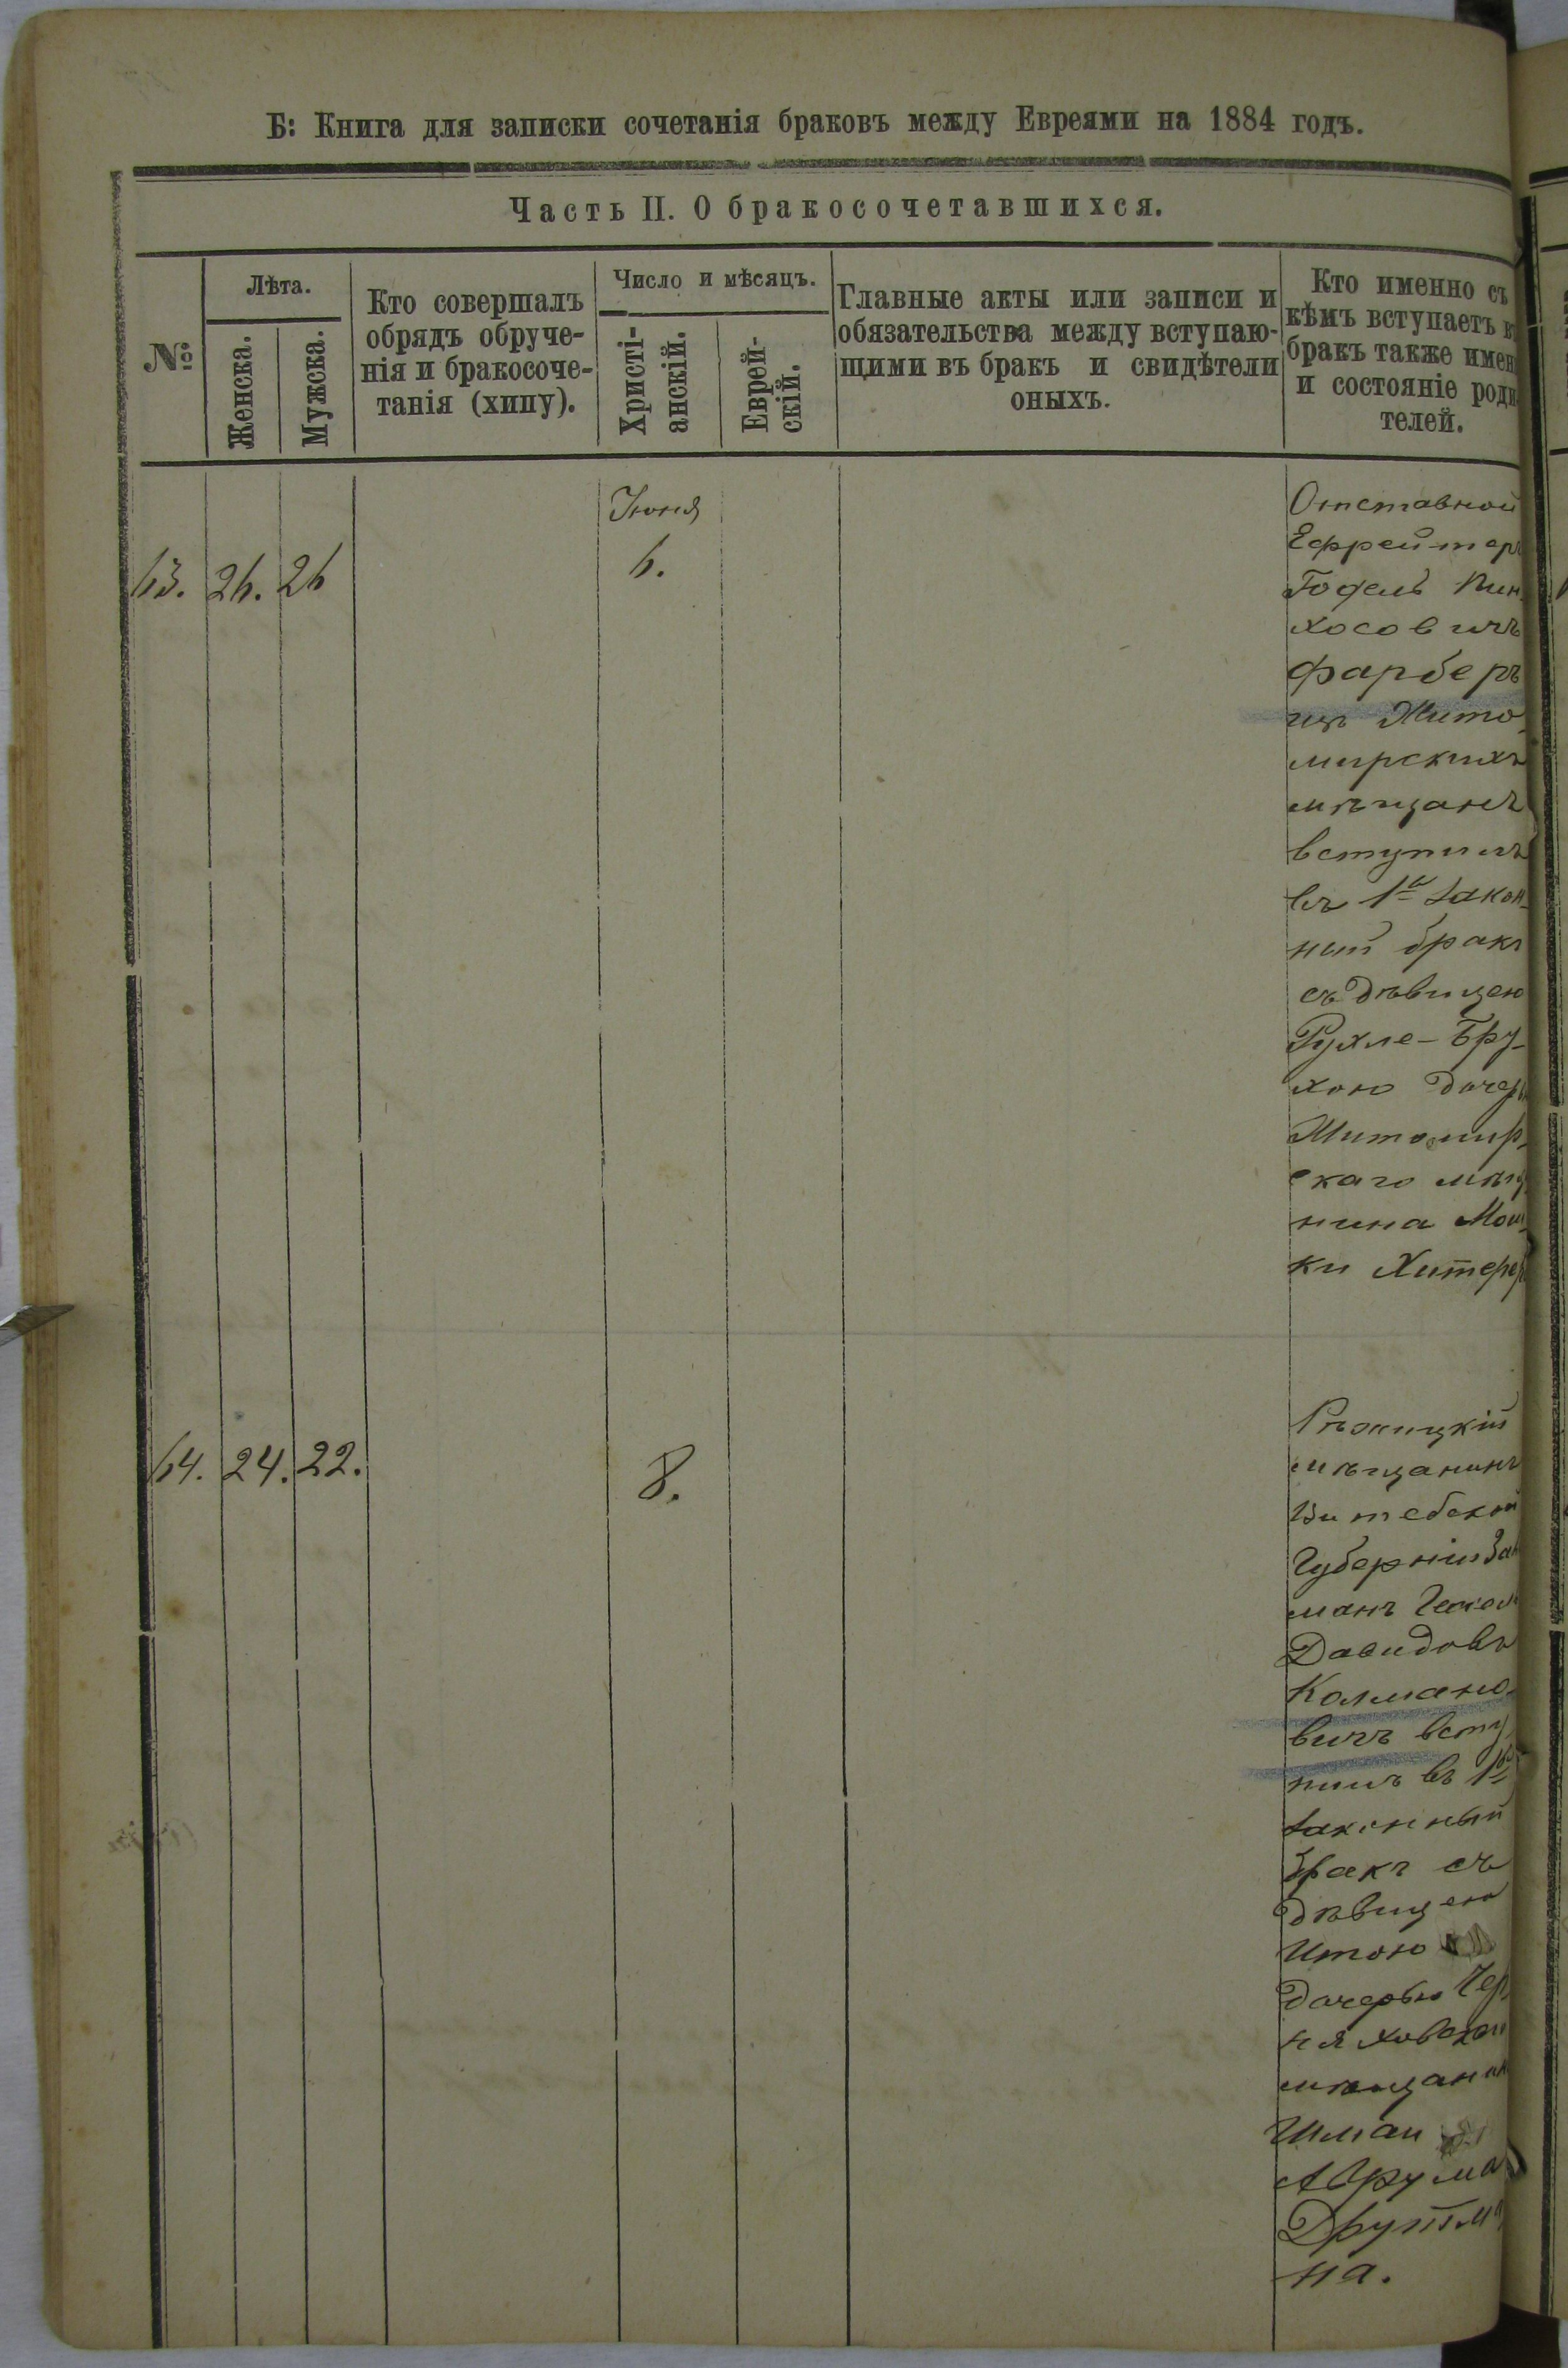 Б: Книга для записки сочетанія браковъ между Евреями на 1884 годъ.
Часть II. О бракосочетавшихся.
№
Лѣта.
Женска.
Мужска.
Кто совершалъ
обрядъ обруче-
нія и бракосоче-
танія (хипу).
Число и мѣсяцъ.
Христі-
анскій.
Еврей-
скій.
Главные акты или записи и
обязательства между вступаю-
щими въ бракъ и свидѣтели
оныхъ.
Кто именно съ
кѣмъ вступаетъ въ
бракъ также имен
и состояніе роди
телей.
63. 26. 26
Іюня
6.
Отставной
Ефрейтеръ
Гофель Пин
хосовичъ
Фарберъ
изъ Жито
мирскихъ
мѣщанъ
вступилъ
въ 1й закон
ный бракъ
съ дѣвицею
Рухле-Бру-
хою дочерь
Житомир
скаго мѣщ
нина Мош
ки Хитерер
64. 24. 22.
8.
Рѣжицкій
мѣщанинъ
Витебской
Губерніи Зал
манъ
Давидовъ
Калмано-
вичъ всту
пилъ въ 1й
законный
бракъ съ
дѣвицею
Итою
дочерью Чер
няховскаи
мѣщанин
Шмаи
Аврума
Друтма
на.